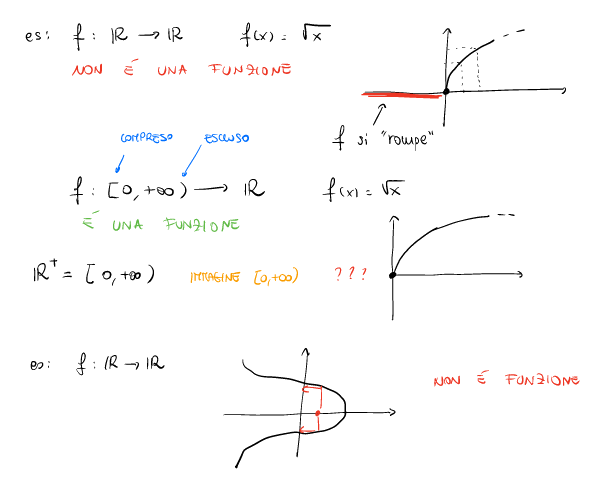 es: f: ℝ → ℝ f(x) = √x
NON É UNA FUNZIONE
f si "rompe"
COMPRESO ESCLUSO
f: [0, +∞) → ℝ f(x) = √x
É UNA FUNZIONE
ℝ⁺ = [0, +∞) IMMAGINE [0, +∞) ???
es: f: ℝ → ℝ
NON É FUNZIONE